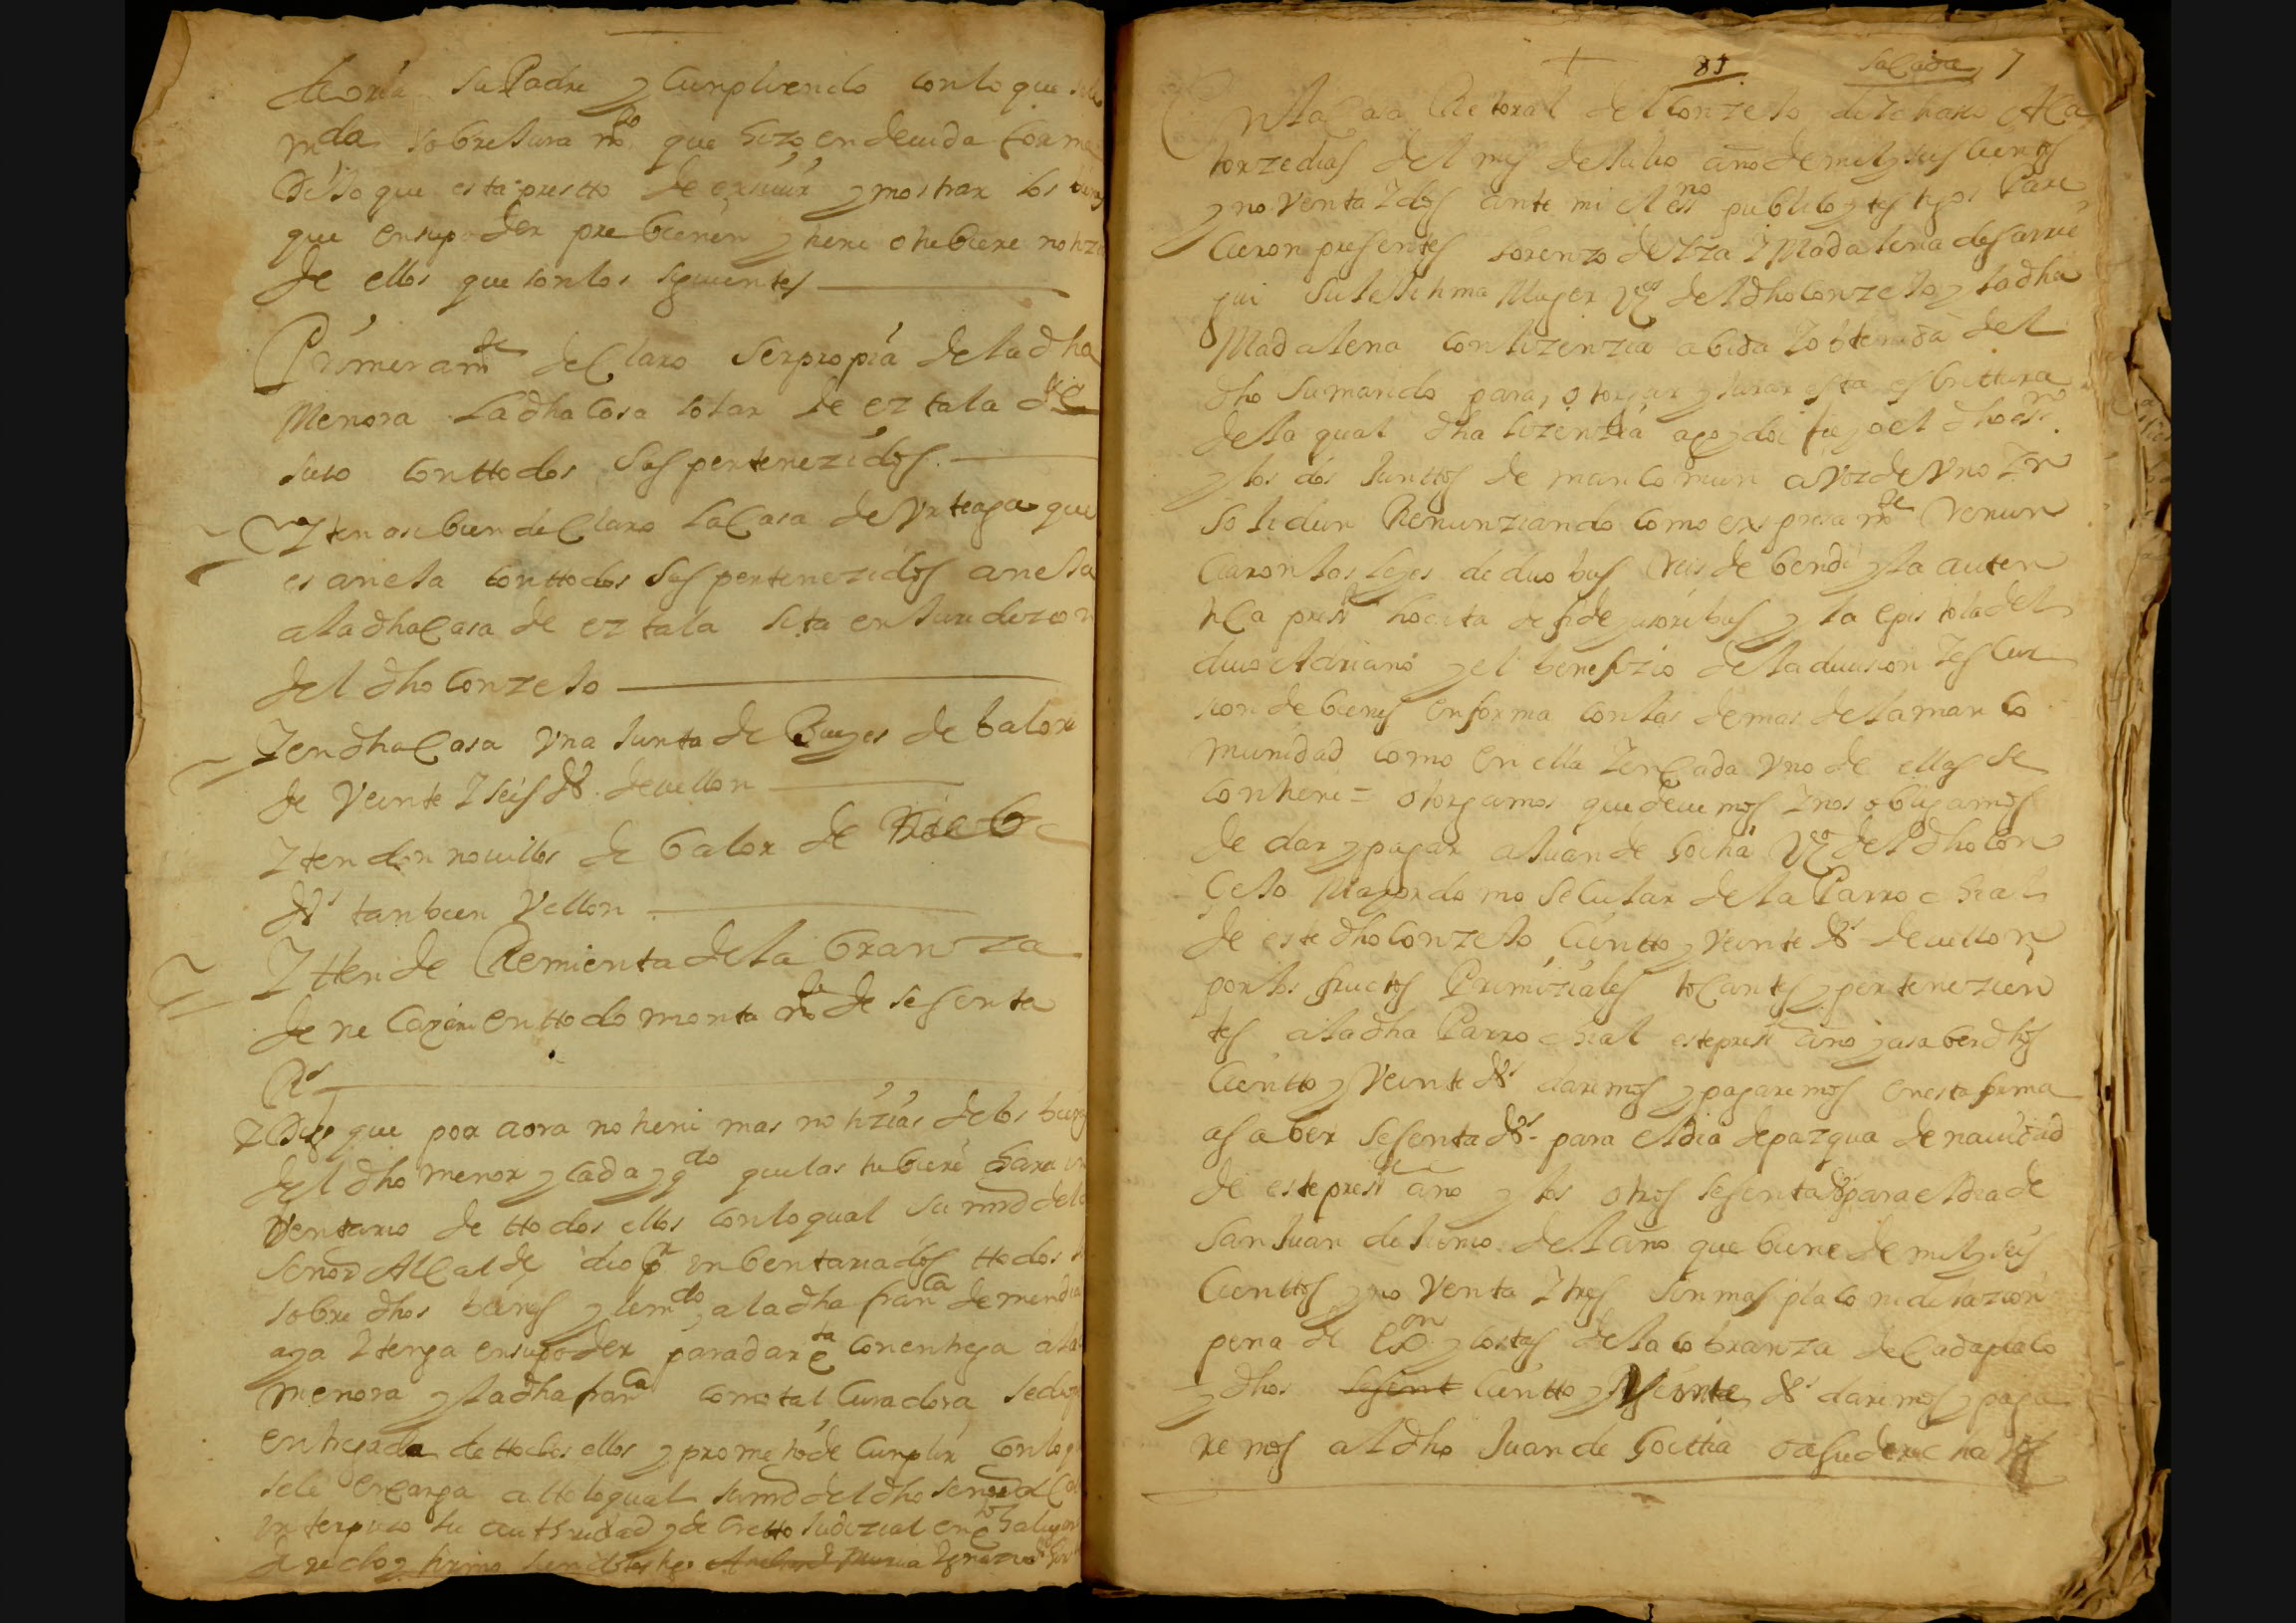 su Padre y Cumpliendo con lo que
mda sobre Jura mto que hizo en deuida forma
Dijo que esta prestto de exiuir y mostrar los
que en su poder prebienen y tiene o tubiere notiz
de ellos que son los siguientes
Primeramte deClaro Ser propia de la dha
Menora La dha Cosa solar de eztala
suso Conttodos Sus pertenezidos.
Yten asi bien deClaro La Casa de Vrteaga que
es aneja conttodos Sus pertenezidos aneja
a la dha Casa de eztala sita en Juridizion
del dho Conzejo
Y en dha Casa Vna Junta de Bueyes de balor
de Veinte Y seis ds. de uellon
Yten dos nouillos de balor de
ds tanbien Vellon
Ytten de Remienta de la branza
de ne en ttodo monta mto de sesenta
Rs
Y Dijo que por aora no tiene mas notizias de los bienes
del dho menor y Cada y qdo que las tubiere hara in
Ventario de ttodos ellos Con lo qual su md del
Señor Alcalde dio pr inbentariados ttodos
sobre dhos bienes y a la dha franca de mendia
aya Y tenga en su poder para dar cta con entrega a la
menora y la dha franca Como tal Curadora se dio
entregada de ttodos ellos y prometio de Cunplir Con lo q
se le enCarga a tto lo qual su md del dho señor alCal
interpuso su authoridad y de Cretto Judizial en
derecho y firmo siendo testigos
+ 85 saCada 7
En la Casa Retoral del Conzejo de Ychaso A Ca
torze dias del mes de Julio año de mil y seis Cientos
y no Venta Y dos ante mi el esno publico y testigos Pare
Cieron presentes Lorenzo de Yza Y Madalena de
gui Su lejitima Muger Vos del dho Conzejo y la dha
Madalena Con lizenzia abida Y obtenida del
dho su marido para otorgar y Jurar esta esCrittura
de la qual dha lizenzia de que doi fee yo el dho esno.
y los dos Junttos de man Comun a Voz de Vno Y in
solidun Renunziando Como expresamte Renun
Ciaron las leyes de duobus Reis de bendi y la auten
tiCa preste hocita de fidejusoribus y la epistola del
diuo Adriano y el benefizio de la diuision Y esCur
sion de bienes en forma Con las demas de la man Co
munidad Como en ella Y en Cada Vno de ellas se
Contiene = otorgamos que deuemos Y nos obligamos
de dar y pagar a Juan de Goitia Vo del dho Con
Çejo Mayordomo Secular de la Parrochial
de este dho Conzejo Cientto y Veinte ds de uellon
por los fructos Primiziales toCantes y pertenezien
tes a la dha Parrochial este preste año y a saber dhos
Cientto y Veinte ds daremos y pagaremos en esta forma
asaber Sesenta ds. para el dia de pazqua de nauidad
de este preste año y los otros sesenta ds para el dia de
San Juan de Junio del año que biene de mil y seis
Cienttos y no Venta Y tres sin mas plaço ni dilazion
pena de exon y Costas de la Cobranza de Cada plaço
y dhos sesent Cientto y Veinte ds daremos y paga
remos al dho Juan de Goittia o a su derecha los